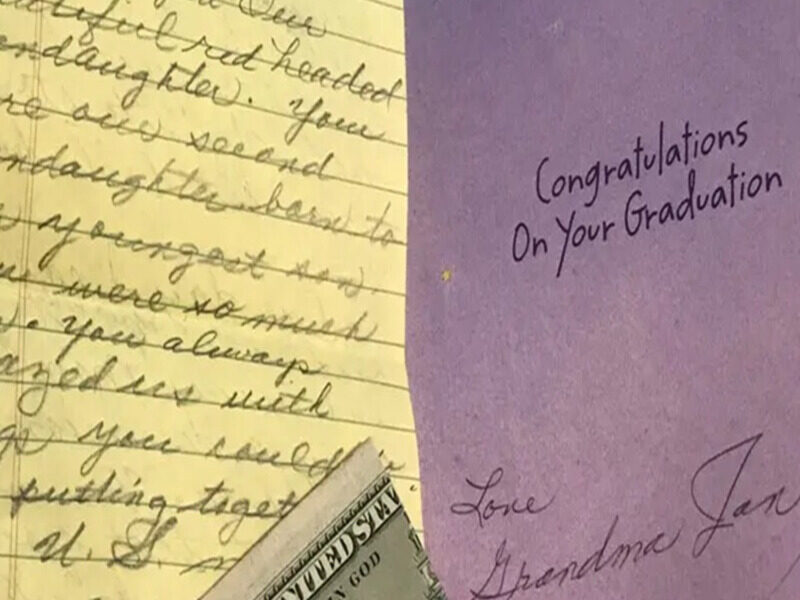 Our
utiful red headed
andaughter. You
re our second
ndaughter born to
youngest son.
were so much
. You always
azed us with
gs you could
putting toget
U. S.
NITED STA
N GOD
Congratulations
On Your Graduation
Love
Grandma Jan